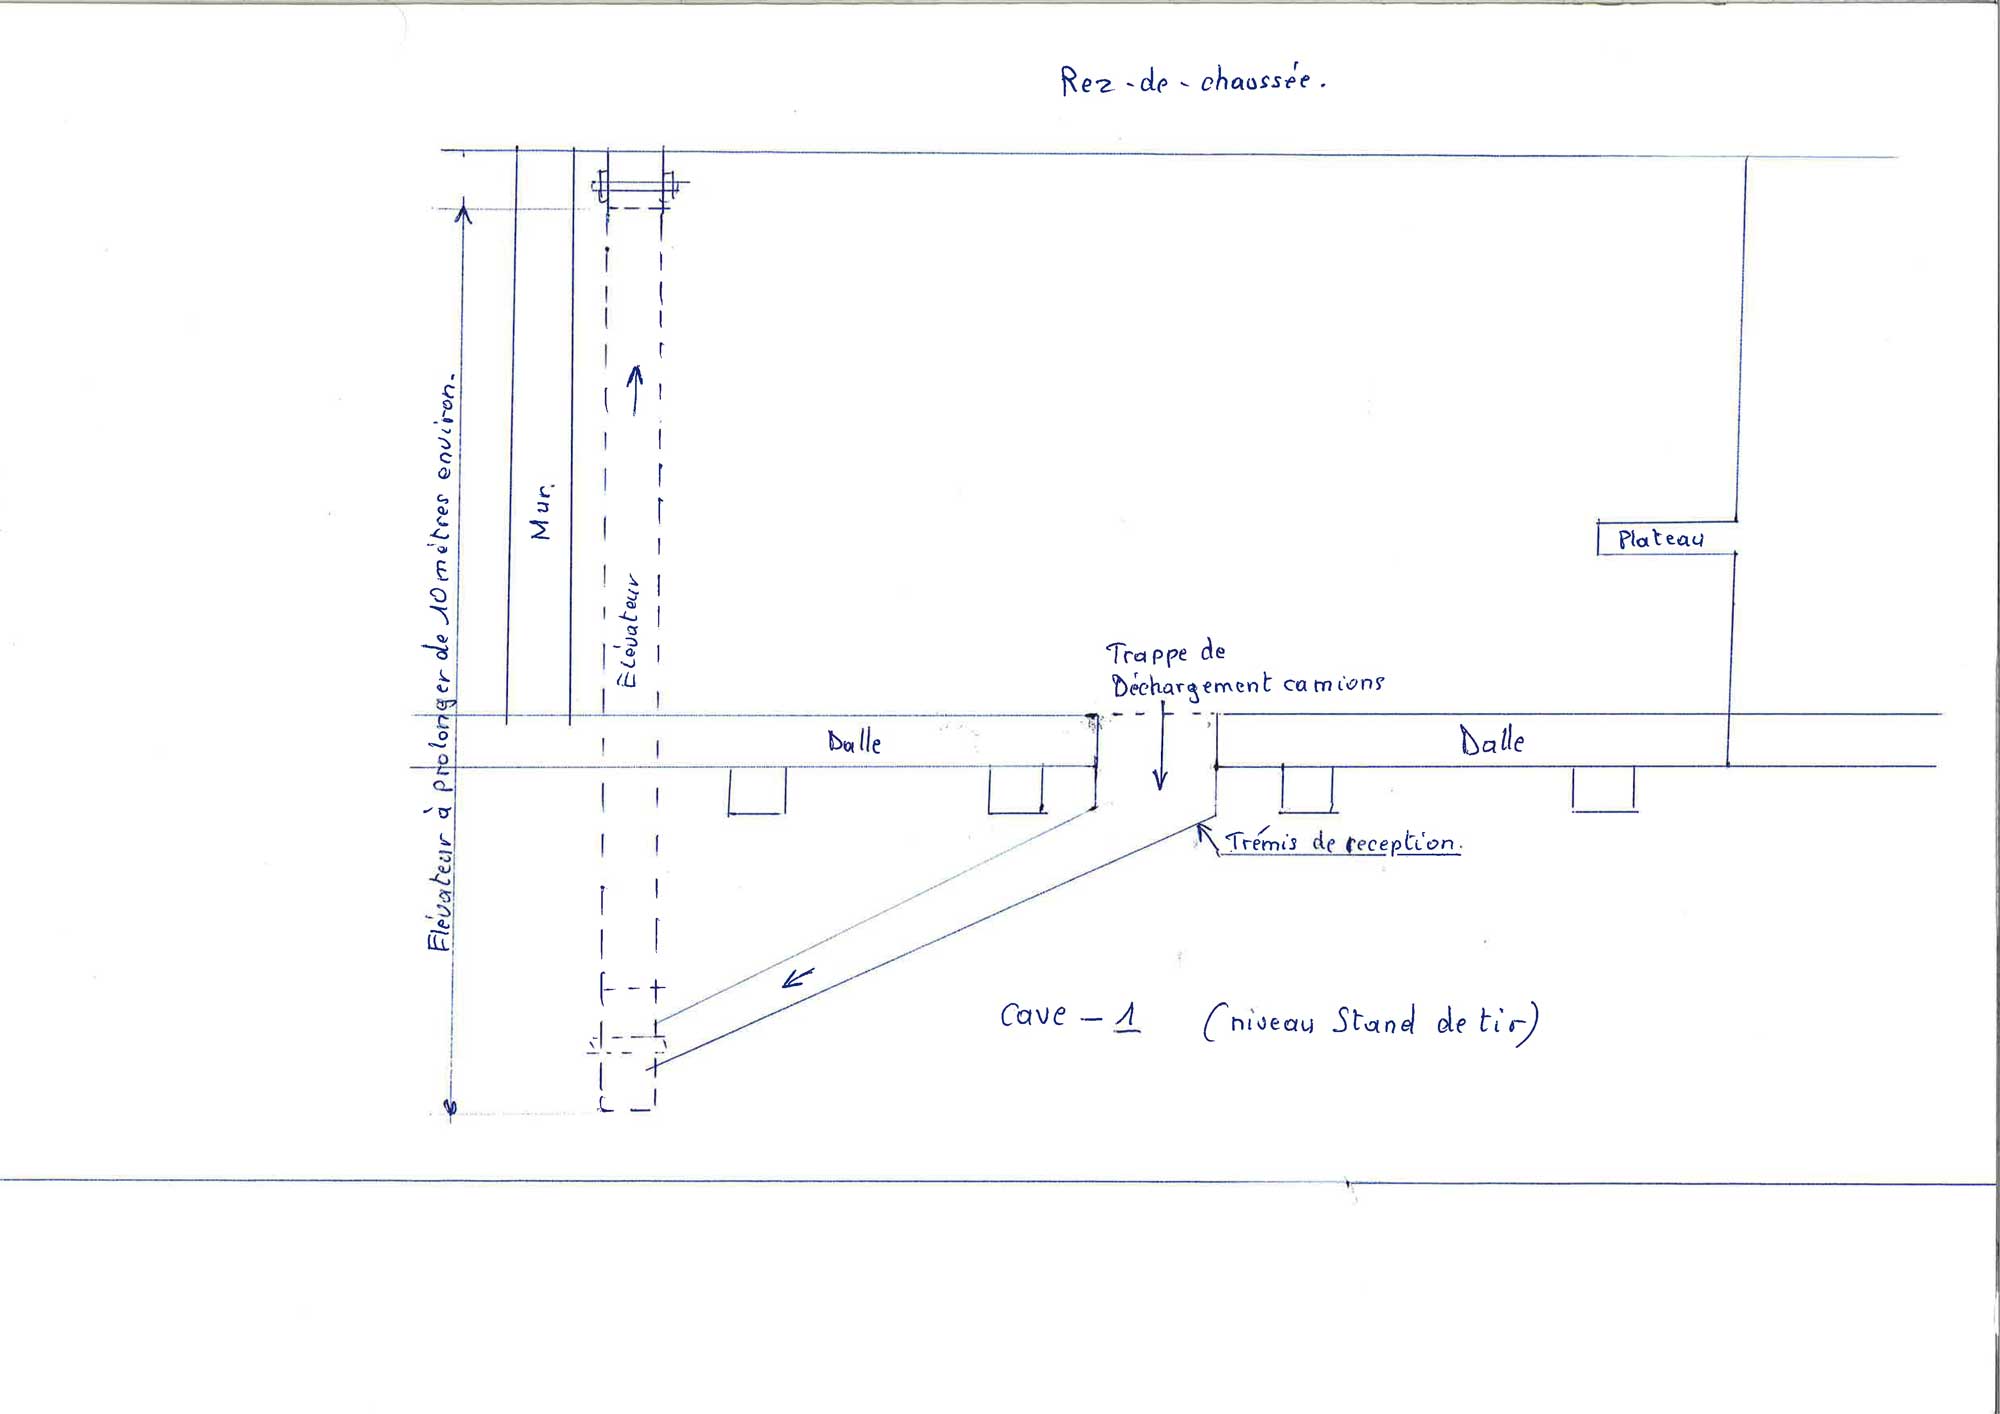 Rez-de-chaussée.
Elévateur à prolonger de 10 mètres environ.
Mur.
Elévateur
Plateau
Trappe de
Déchargement camions
Dalle
Dalle
Trémis de reception.
Cave - 1 (niveau Stand de tir)